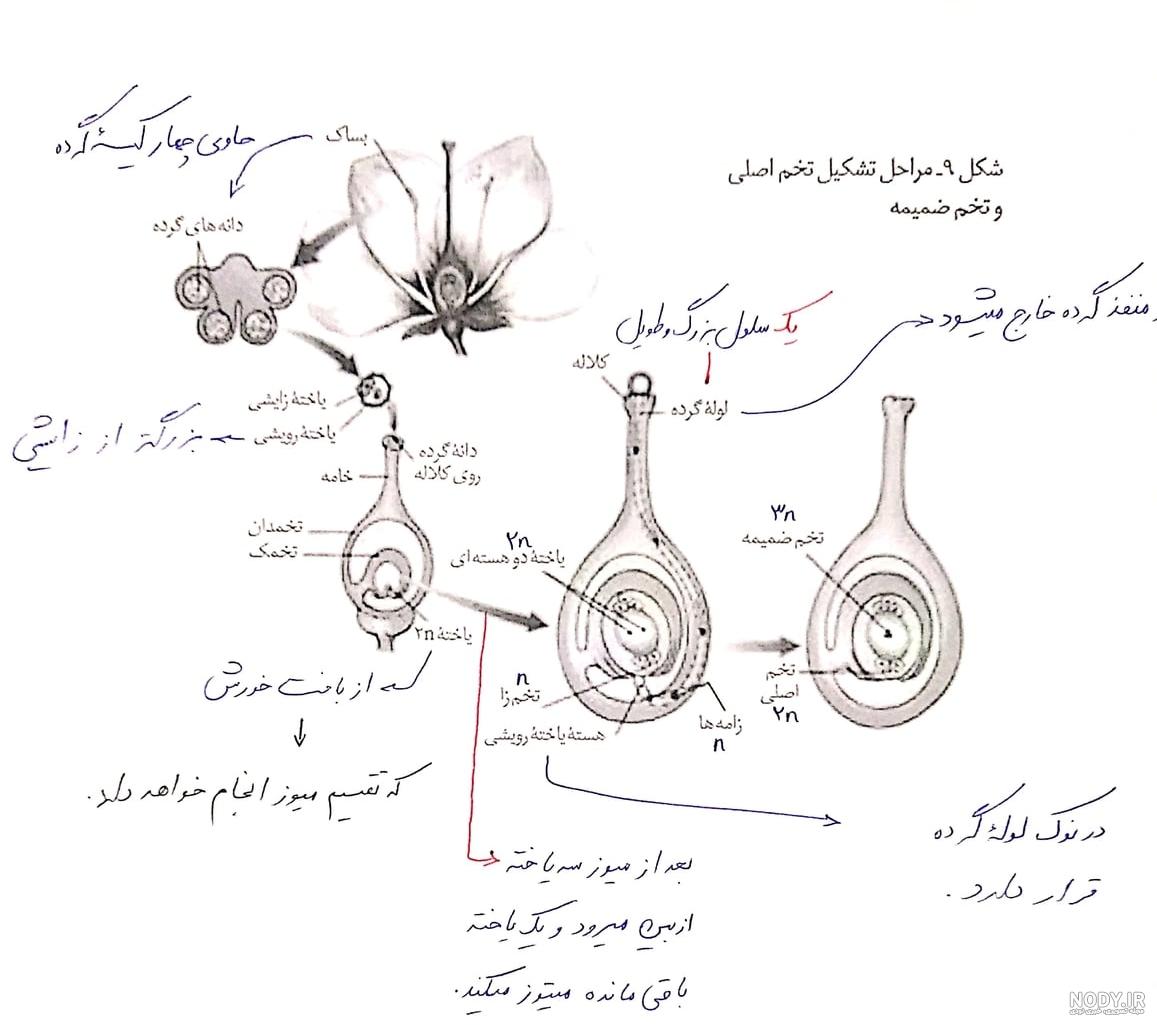 شکل ۹ـ مراحل تشکیل تخم اصلی
و تخم ضمیمه
حاوی چهار کیسهٔ گرده
بساک
دانه های گرده
یک سلول بزرگ و طویل
منفذ گرده خارج میشود
کلاله
لولهٔ گرده
یاختهٔ زایشی
یاختهٔ رویشی
بزرگتر از زایشی
دانهٔ گرده
روی کلاله
خامه
تخمدان
تخمک
۲n
یاختهٔ دو هسته ای
۳n
تخم ضمیمه
یاختهٔ ۲n
که از بافت خورش
که تقسیم میوز انجام خواهد داد.
n
تخم زا
هستهٔ یاختهٔ رویشی
زامه ها
n
تخم
اصلی
۲n
در نوک لولهٔ گرده
قرار دارد.
بعد از میوز سه یاخته
از بین میرود و یک یاخته
باقی مانده میتوز میکند.
NODY.IR